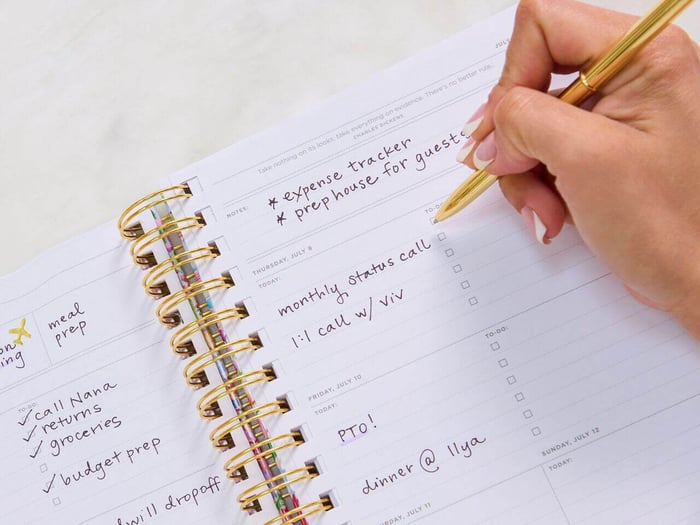 meal
prep
TO-DO:
✓call Nana
✓returns
✓groceries
✓budget prep
will dropoff
JULY
Take nothing on its looks; take everything on evidence. There's no better rule.
CHARLES DICKENS
NOTES:
* expense tracker
* prep house for guests
THURSDAY, JULY 9
TODAY:
TO-DO:
monthly status call
1:1 call w/ viv
FRIDAY, JULY 10
TODAY:
TO-DO:
PTO!
dinner @ Ilya
URDAY, JULY 11
SUNDAY, JULY 12
TODAY: